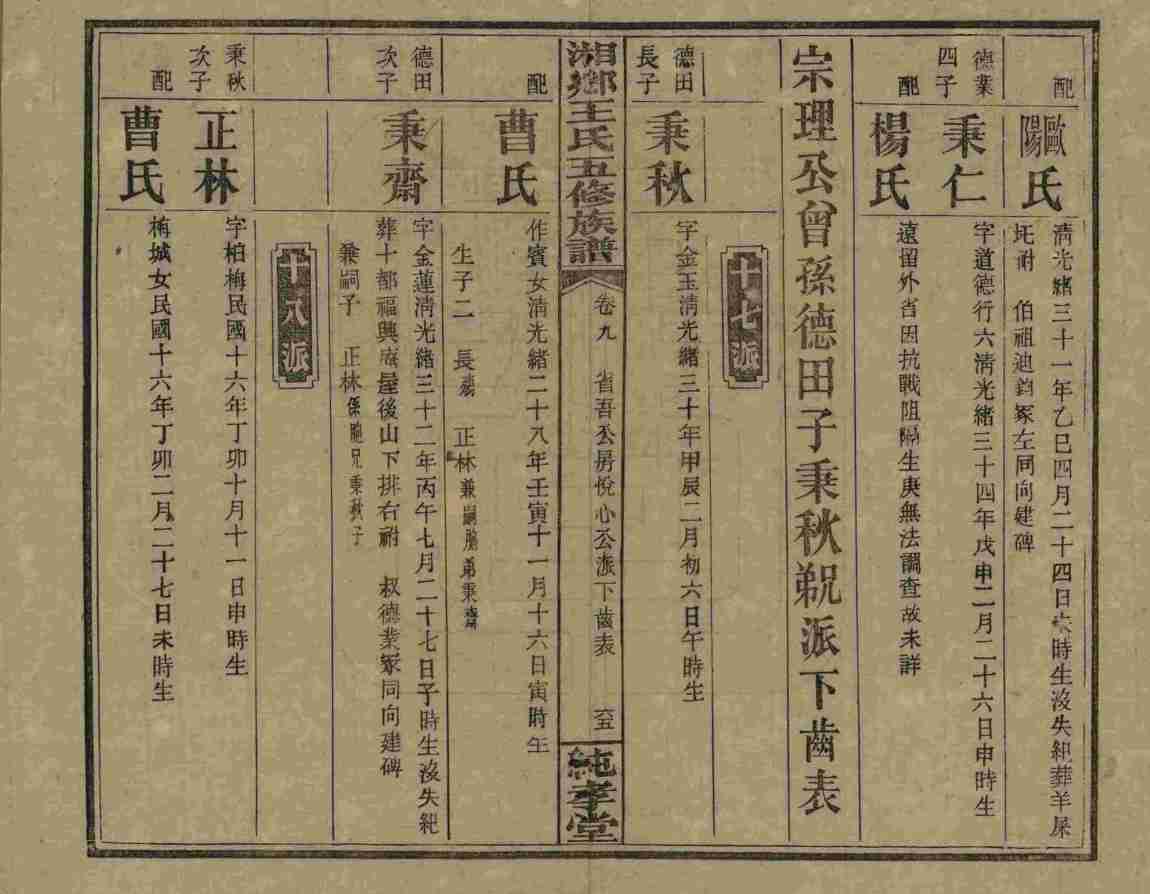 配
歐陽氏
清光緒三十一年乙巳四月二十四日未時生沒失紀葬羊屎
圫祔 伯祖迪鈞冢左同向建碑
德業四子
秉仁
字道德行六清光緒三十四年戊申二月二十六日申時生
配
楊氏
遠留外省因抗戰阻隔生庚無法調查故未詳
宗理公曾孫德田子秉秋䙷派下齒表
十七派
德田長子
秉秋
字金玉清光緒三十年甲辰二月初六日午時生
湘鄉王氏五修族譜
卷九 省吾公房悅心公派下齒表 六五
純孝堂
配
曹氏
作賓女清光緒二十八年壬寅十一月十六日寅時生
生子二 長殤 正林兼嗣胞弟秉齋
德田次子
秉齋
字金蓮清光緒三十二年丙午七月二十七日子時生沒失紀
葬十都福興庵屋後山下排右祔 叔德業冢同向建碑
兼嗣子 正林係胞兄秉秋子
十八派
秉秋次子
正林
字柏梅民國十六年丁卯十月十一日申時生
配
曹氏
梅城女民國十六年丁卯二月二十七日未時生